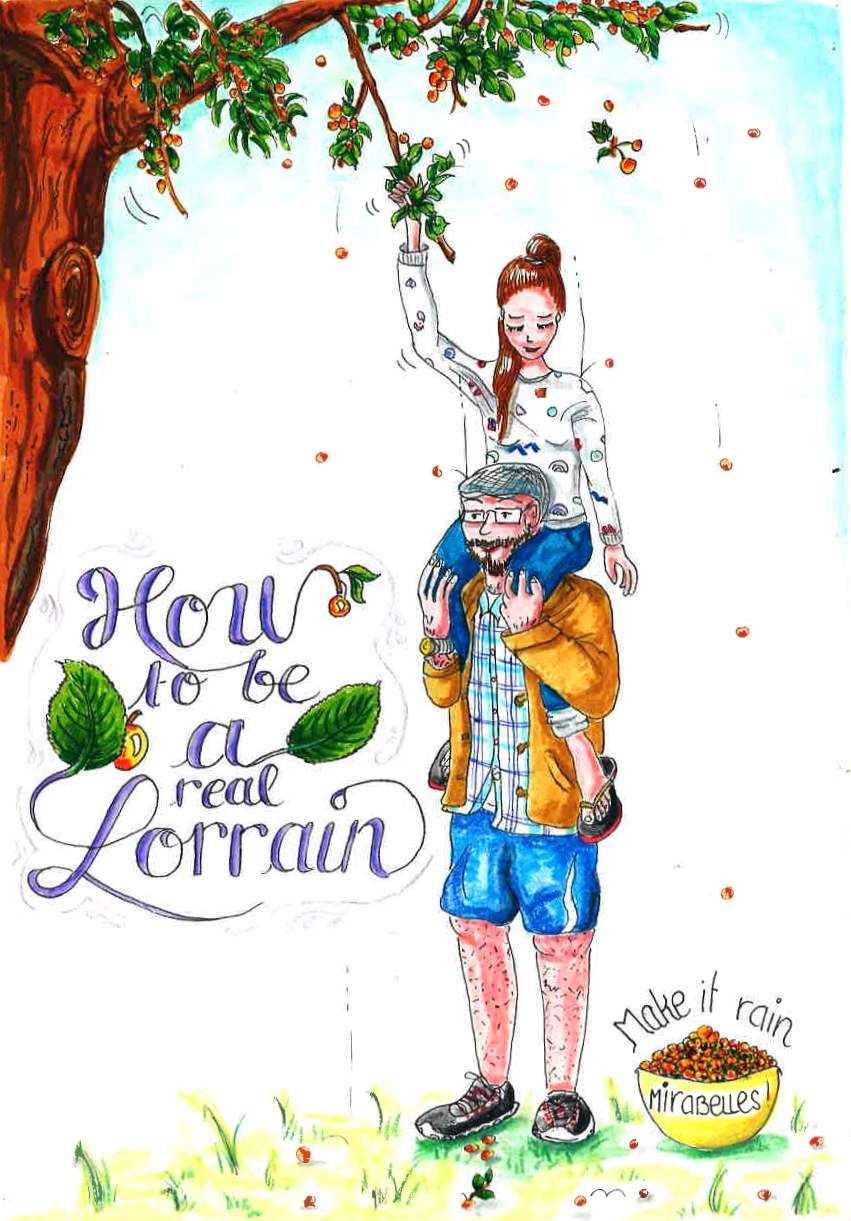 How
to be
a
real
Lorrain
Make it rain
MiRABELLES!